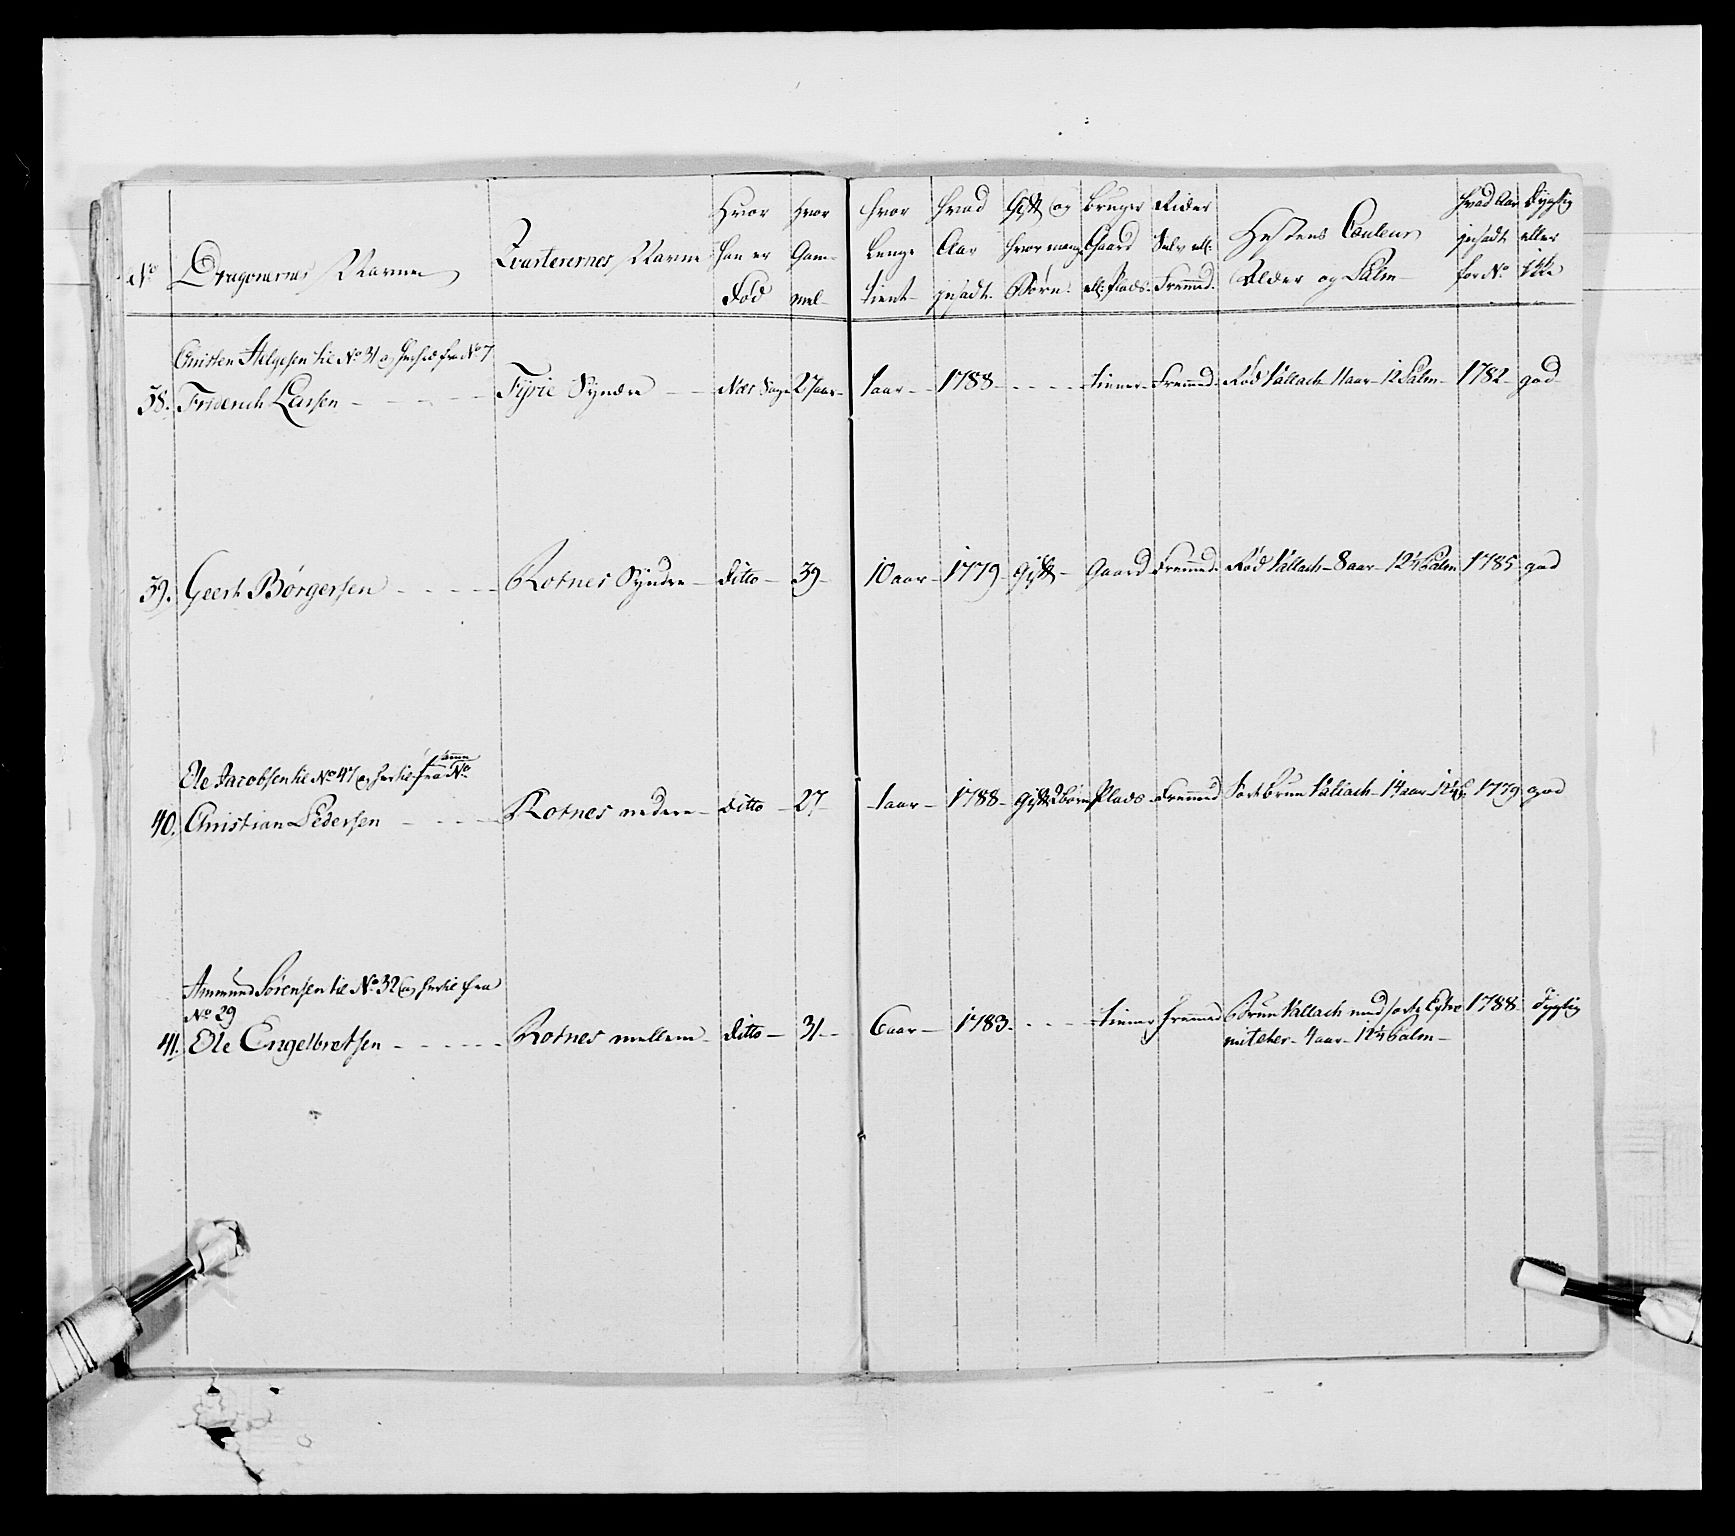 No
Dragonernes Navne
Qvarterernes Navne
Hvor han er Fød
Hvor Gam-mel
Hvor Lenge tient
Hvad Aar indsadt
Gift og hvor mange Børn
Bruger Gaard ell: Plads
Rider Selv ell: Fremmed
Hestens Couleur Alder og Palm
Hvad Aar indsadt for No
Dygtig eller ikke
Christen Helgesen til No 31 og hertil fra No 7
38. Friderich Larsen Fyrie Syndre 27 aar 1 aar 1788 tiener Fremmed Rød Vallach 11 aar 12 Palm 1782 god
39. Geert Børgersen Rotnes Syndre ditto 39 10 aar 1779 gift Gaard Fremmed Rød Vallach 8 aar 12½ Palm 1785 god
Ole Jacobsen til No 47 og hertil fra samme No
40. Christian Pedersen Rotnes nedere ditto 27 1 aar 1788 gift 2 børn Plads Fremmed Sort brun Vallach 14 aar 1779 god
Ammund Sørensen til No 32 og hertil fra
No 29
41. Ole Engelbretsen Rotnes mellem ditto 31 6 aar 1783 tiener fremmed Brun Vallach med sorte 1788 dygtig
4 aar 12½ Palm